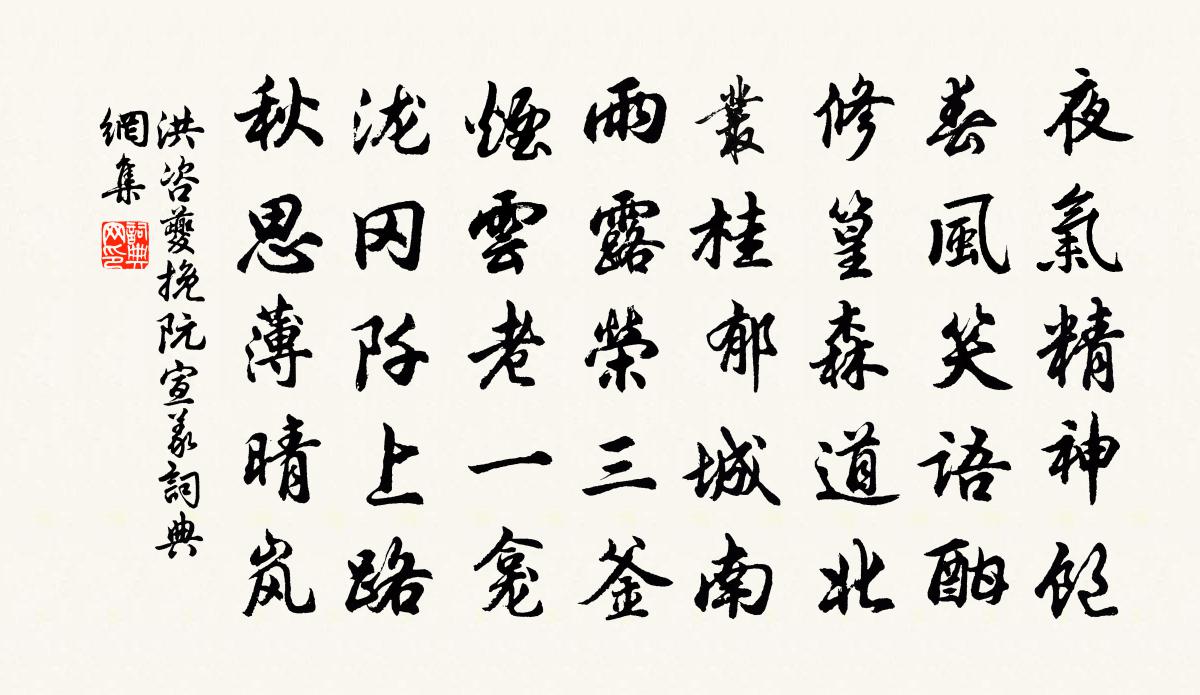 夜氣精神飽
春風笑語酣
修篁森道北
叢桂郁城南
雨露榮三釜
煙雲老一龕
泷冈阡上路
秋思薄晴岚
洪咨夔挽阮宣義詞典
網集
詞典
网印